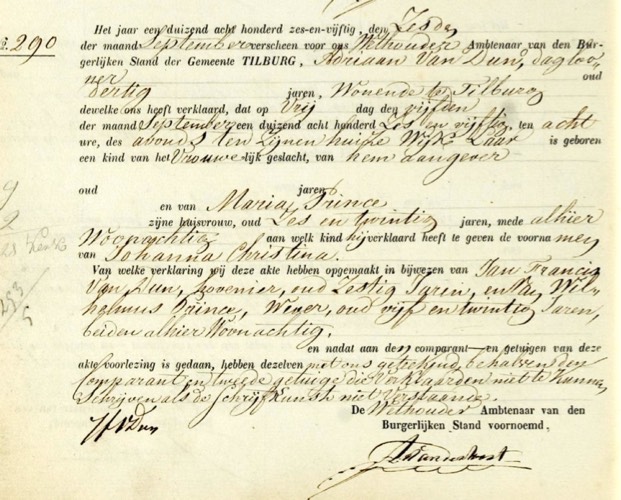 No. 290
Het jaar een duizend acht honderd zes-en-vijftig, den Zesden
der maand September verscheen voor ons Wethouder Ambtenaar van den Bur-
gerlijken Stand der Gemeente TILBURG, Adriaan Van Dun, dagloo-
ner oud
dertig jaren, Wonende te Tilburg
dewelke ons heeft verklaard, dat op Vrij dag den vijfden
der maand September een duizend acht honderd Zes en vijftig, ten acht
ure, des avonds ten Zijnen huize Wijk Laar is geboren
een kind van het Vrouwelijk geslacht, van hem aangever
oud jaren
en van Maria Prince
zijne huisvrouw, oud Zes en twintig jaren, mede alhier
Woonachtig aan welk kind hij verklaard heeft te geven de voornamen
van Johanna Christina.
Van welke verklaring wij deze akte hebben opgemaakt in bijwezen van Jan Francis
Van Dun, hovenier, oud Zestig Jaren, en Wil-
helmus Prince, Wever, oud vijf en twintig Jaren,
beiden alhier Woonachtig,
en nadat aan den comparant en getuigen van deze
akte voorlezing is gedaan, hebben dezelven met ons getekend, behalven den
Comparant en tweede getuige die verklaarden niet te kunnen
Schrijven als de Schrijfkunst niet verstaande.
De Wethouder Ambtenaar van den
Burgerlijken Stand voornoemd,
JF v Dun